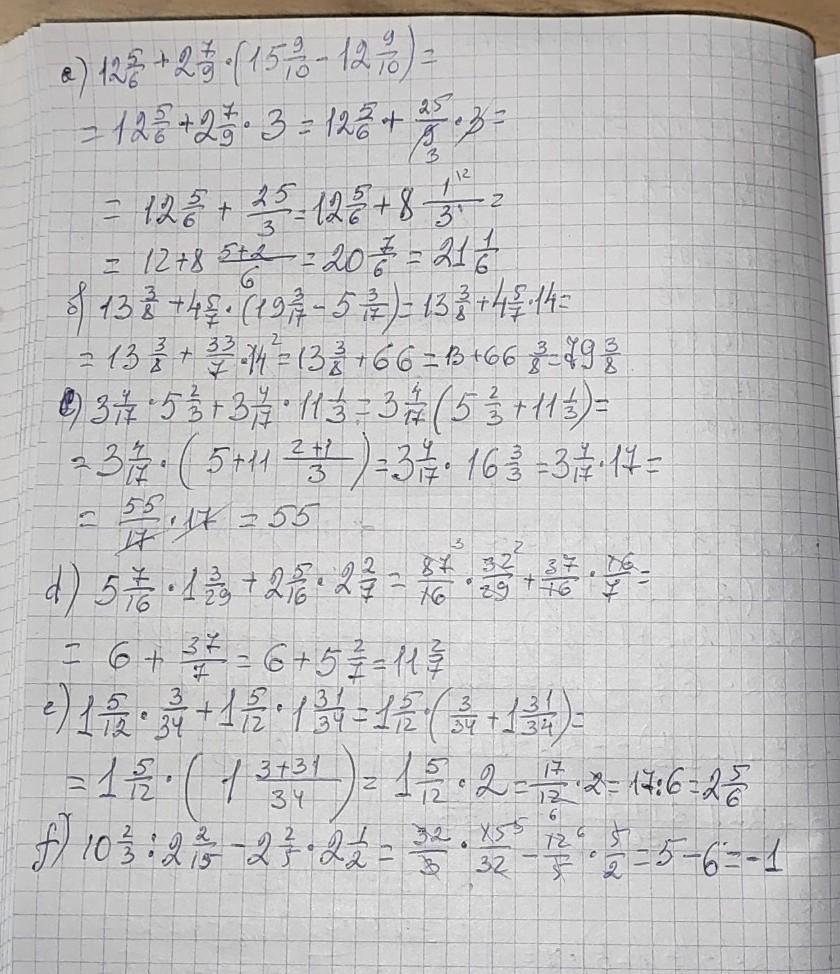 a) 12 5/6 + 2 7/9 · (15 9/10 - 12 9/10) =
= 12 5/6 + 2 7/9 · 3 = 12 5/6 + 25/9 3 · 3 =
= 12 5/6 + 25/3 = 12 5/6 + 8 1/3 2 =
= 12+8 (5+2)/6 = 20 7/6 = 21 1/6
б) 13 3/8 + 4 5/7 · (19 3/17 - 5 3/17) = 13 3/8 + 4 5/7 · 14 =
= 13 3/8 + 33/7 · 14 2 = 13 3/8 + 66 = 13+66 3/8 = 79 3/8
c) 3 4/17 · 5 2/3 + 3 4/17 · 11 1/3 = 3 4/17 (5 2/3 + 11 1/3) =
= 3 4/17 · (5+11 (2+1)/3) = 3 4/17 · 16 3/3 = 3 4/17 · 17 =
= 55/17 · 17 = 55
d) 5 7/16 · 1 3/29 + 2 5/16 · 2 2/7 = 87 3/16 · 32 2/29 + 37/16 · 16/7 =
= 6 + 37/7 = 6 + 5 2/7 = 11 2/7
e) 1 5/12 · 3/34 + 1 5/12 · 1 31/34 = 1 5/12 · (3/34 + 1 31/34) =
= 1 5/12 · (1 (3+31)/34) = 1 5/12 · 2 = 17/12 6 · 2 = 17:6 = 2 5/6
f) 10 2/3 : 2 2/15 - 2 2/5 · 2 1/2 = 32/3 · 15 5/32 - 12 6/5 · 5/2 = 5 - 6 = -1